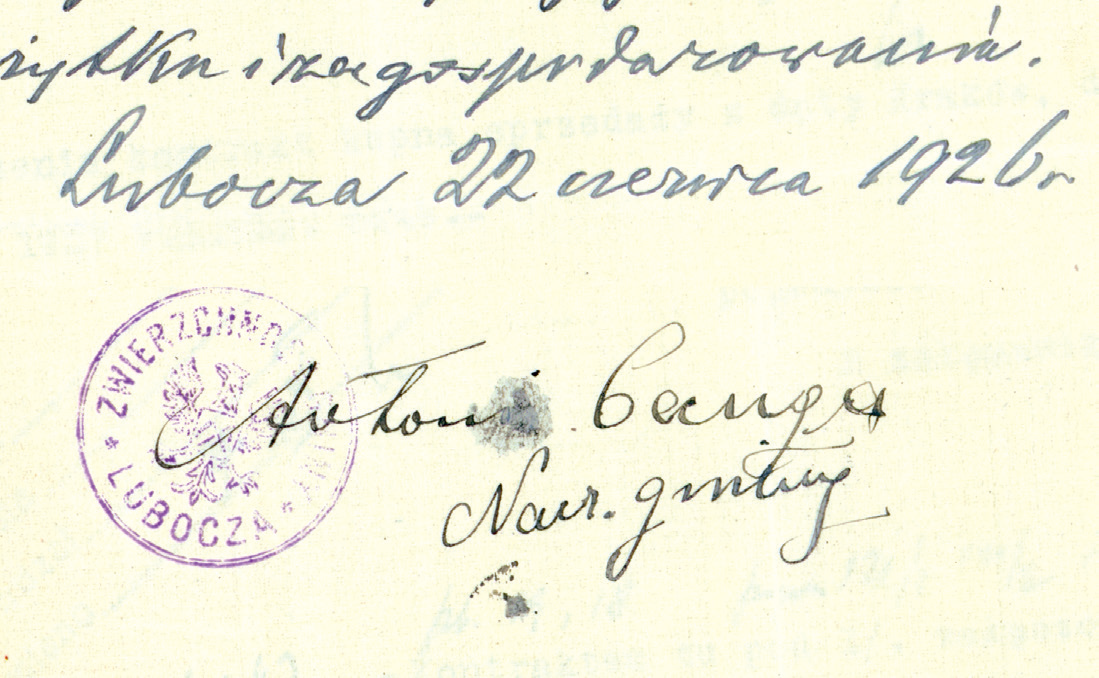 użytku i zagospodarowania.
Lubocza 22 czerwca 1926 r.
ZWIERZCHNOŚ
LUBOCZA
Antoni
Nacz. gminy